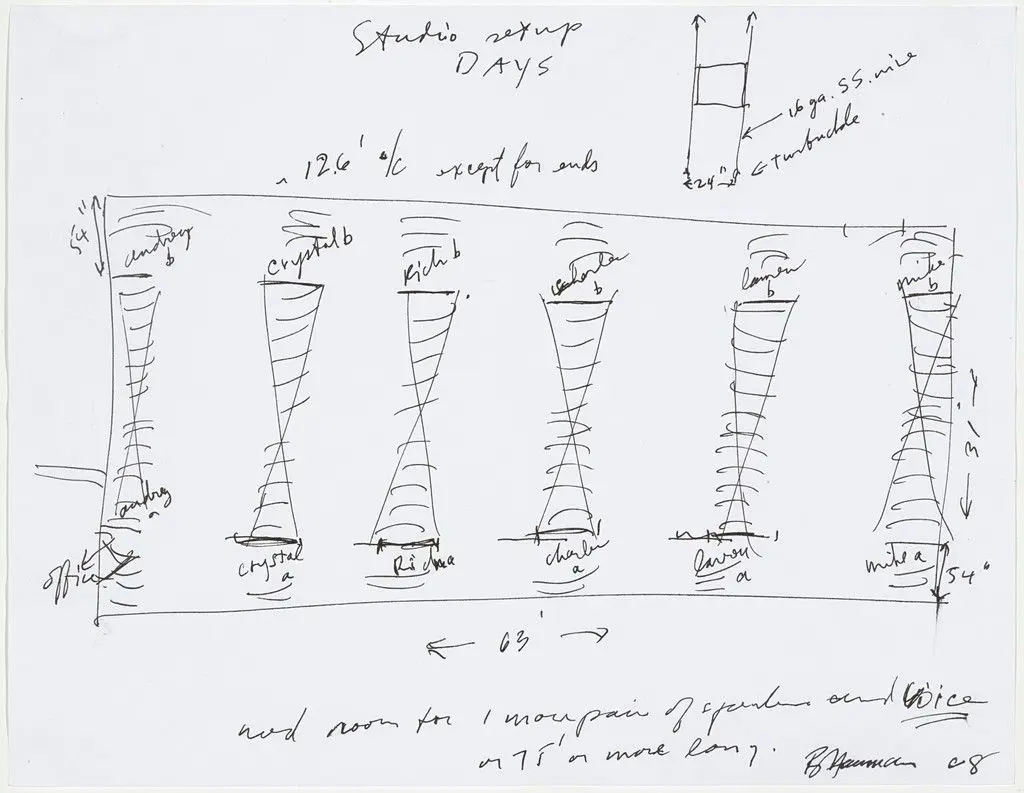 Studio setup
DAYS
16 ga. SS. wire
turnbuckle
24"
~ 12.6' o/c except for ends
54"
andrey
b
crystal b
Rich b
b
lauren
b
mike
b
31'
andrey
a
office
crystal
a
Rich a
charlie
a
lauren
a
mike a
54"
63'
need room for 1 more pair of speakers and voice
or 75' or more long.
B Nauman 08